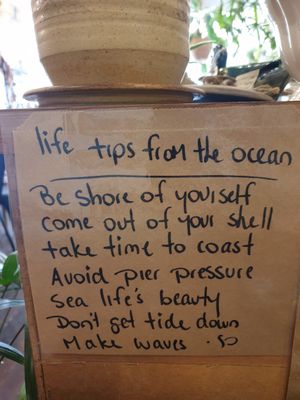 life tips from the ocean
Be shore of yourself
come out of your shell
take time to coast
Avoid pier pressure
Sea life's beauty
Don't get tide down
Make waves